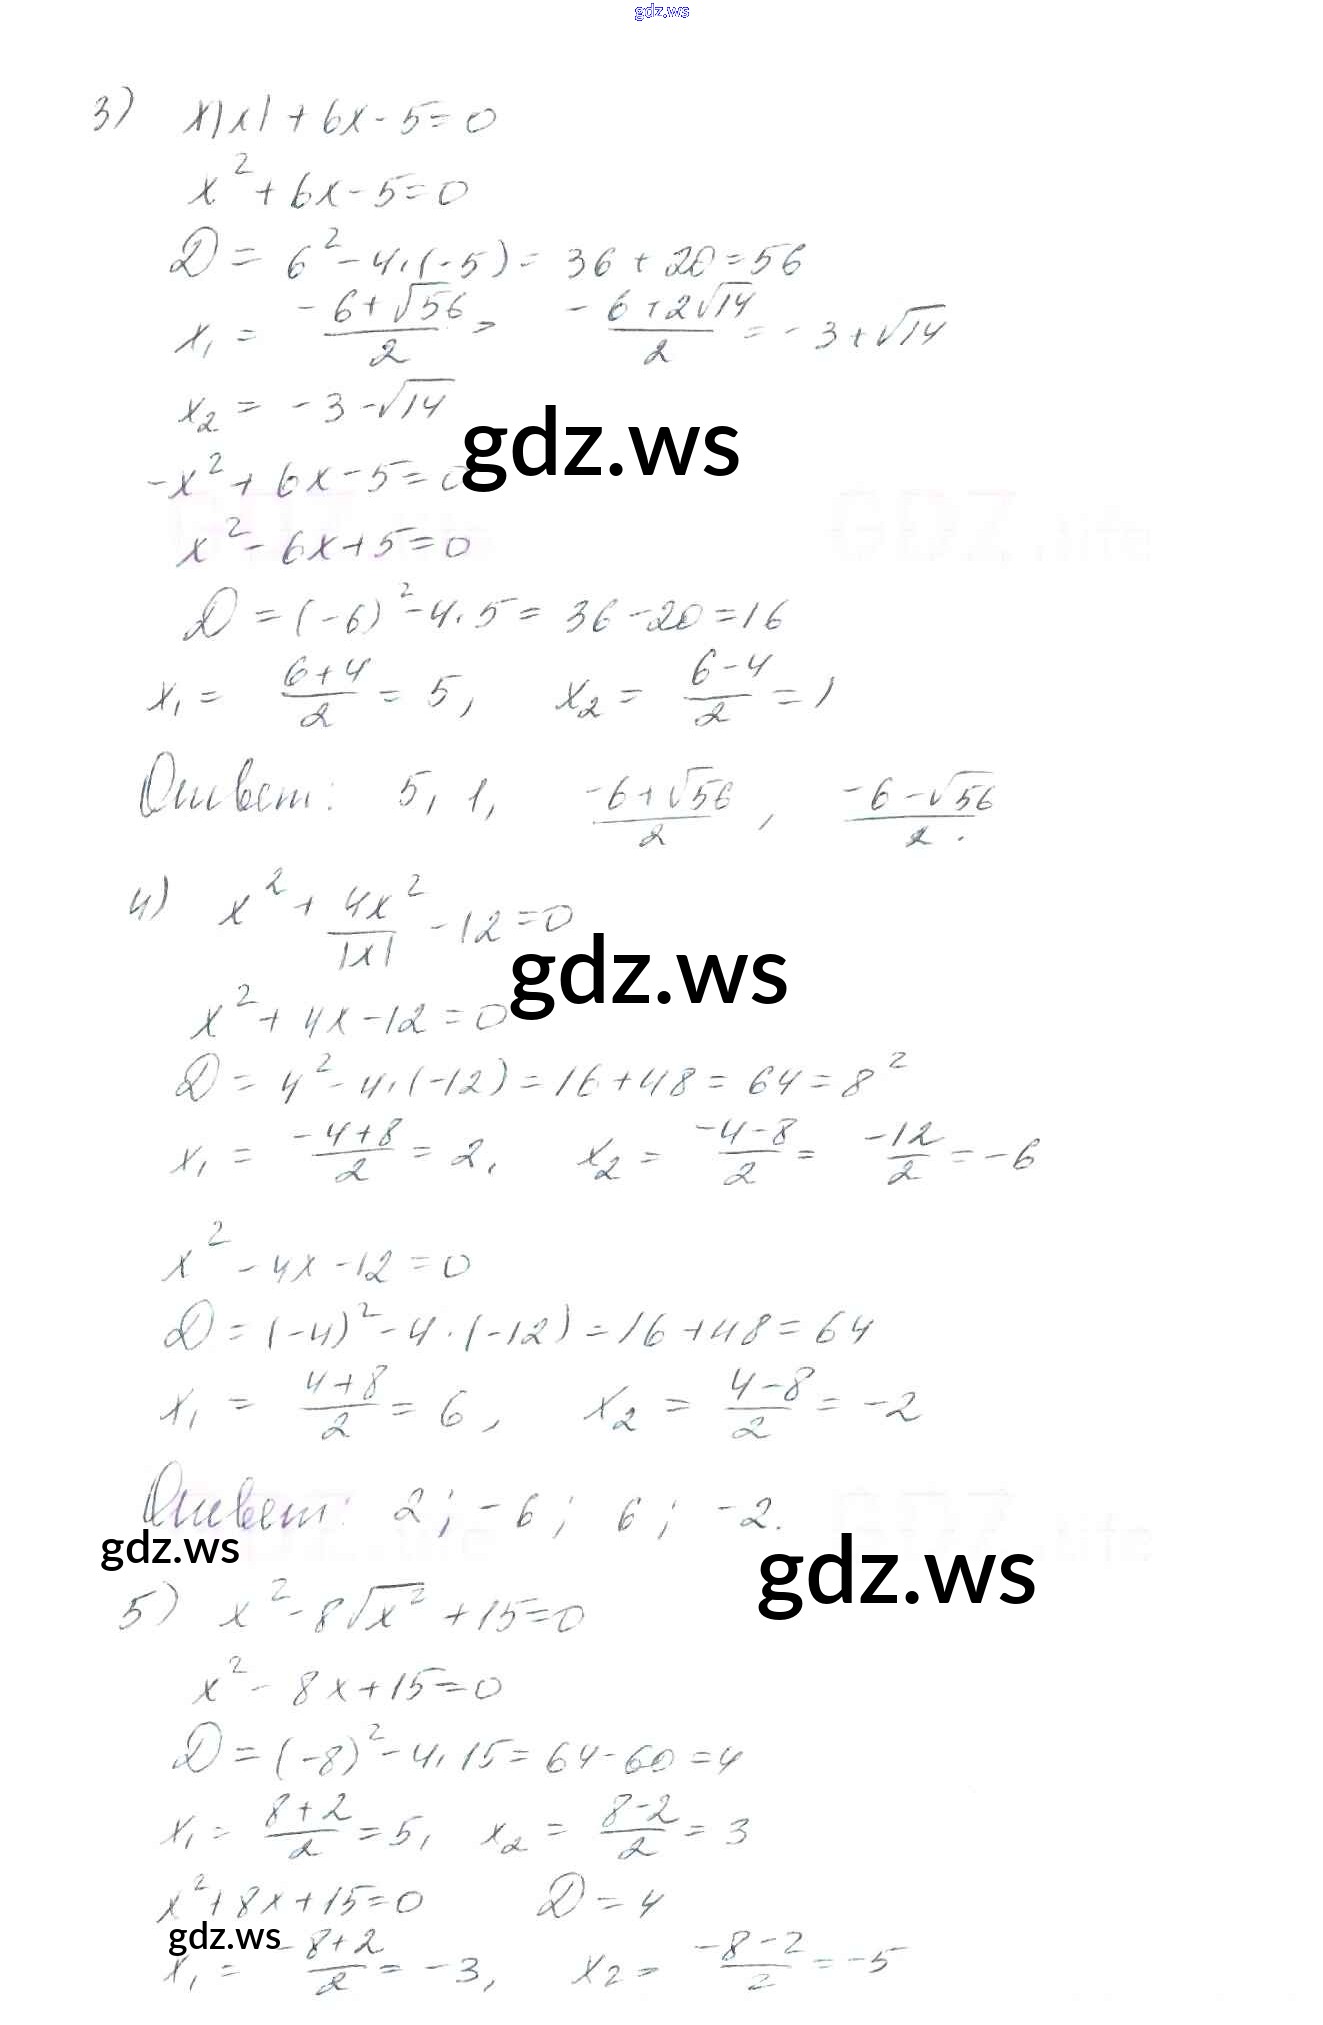 gdz.ws
3) x|x| + 6x - 5 = 0
x² + 6x - 5 = 0
D = 6² - 4·(-5) = 36 + 20 = 56
x₁ = (-6+√56)/2 = (-6+2√14)/2 = -3+√14
x₂ = -3-√14
gdz.ws
-x² + 6x - 5 = 0
x² - 6x + 5 = 0
D = (-6)² - 4·5 = 36 - 20 = 16
x₁ = (6+4)/2 = 5, x₂ = (6-4)/2 = 1
Ответ: 5, 1, (-6+√56)/2, (-6-√56)/2.
4) x² + 4x²/|x| - 12 = 0
gdz.ws
x² + 4x - 12 = 0
D = 4² - 4·(-12) = 16 + 48 = 64 = 8²
x₁ = (-4+8)/2 = 2, x₂ = (-4-8)/2 = -12/2 = -6
x² - 4x - 12 = 0
D = (-4)² - 4·(-12) = 16 + 48 = 64
x₁ = (4+8)/2 = 6, x₂ = (4-8)/2 = -2
Ответ: 2; -6; 6; -2.
gdz.ws
gdz.ws
5) x² - 8√x² + 15 = 0
x² - 8x + 15 = 0
D = (-8)² - 4·15 = 64 - 60 = 4
x₁ = (8+2)/2 = 5, x₂ = (8-2)/2 = 3
x² + 8x + 15 = 0 D = 4
gdz.ws
x₁ = (-8+2)/2 = -3, x₂ = (-8-2)/2 = -5